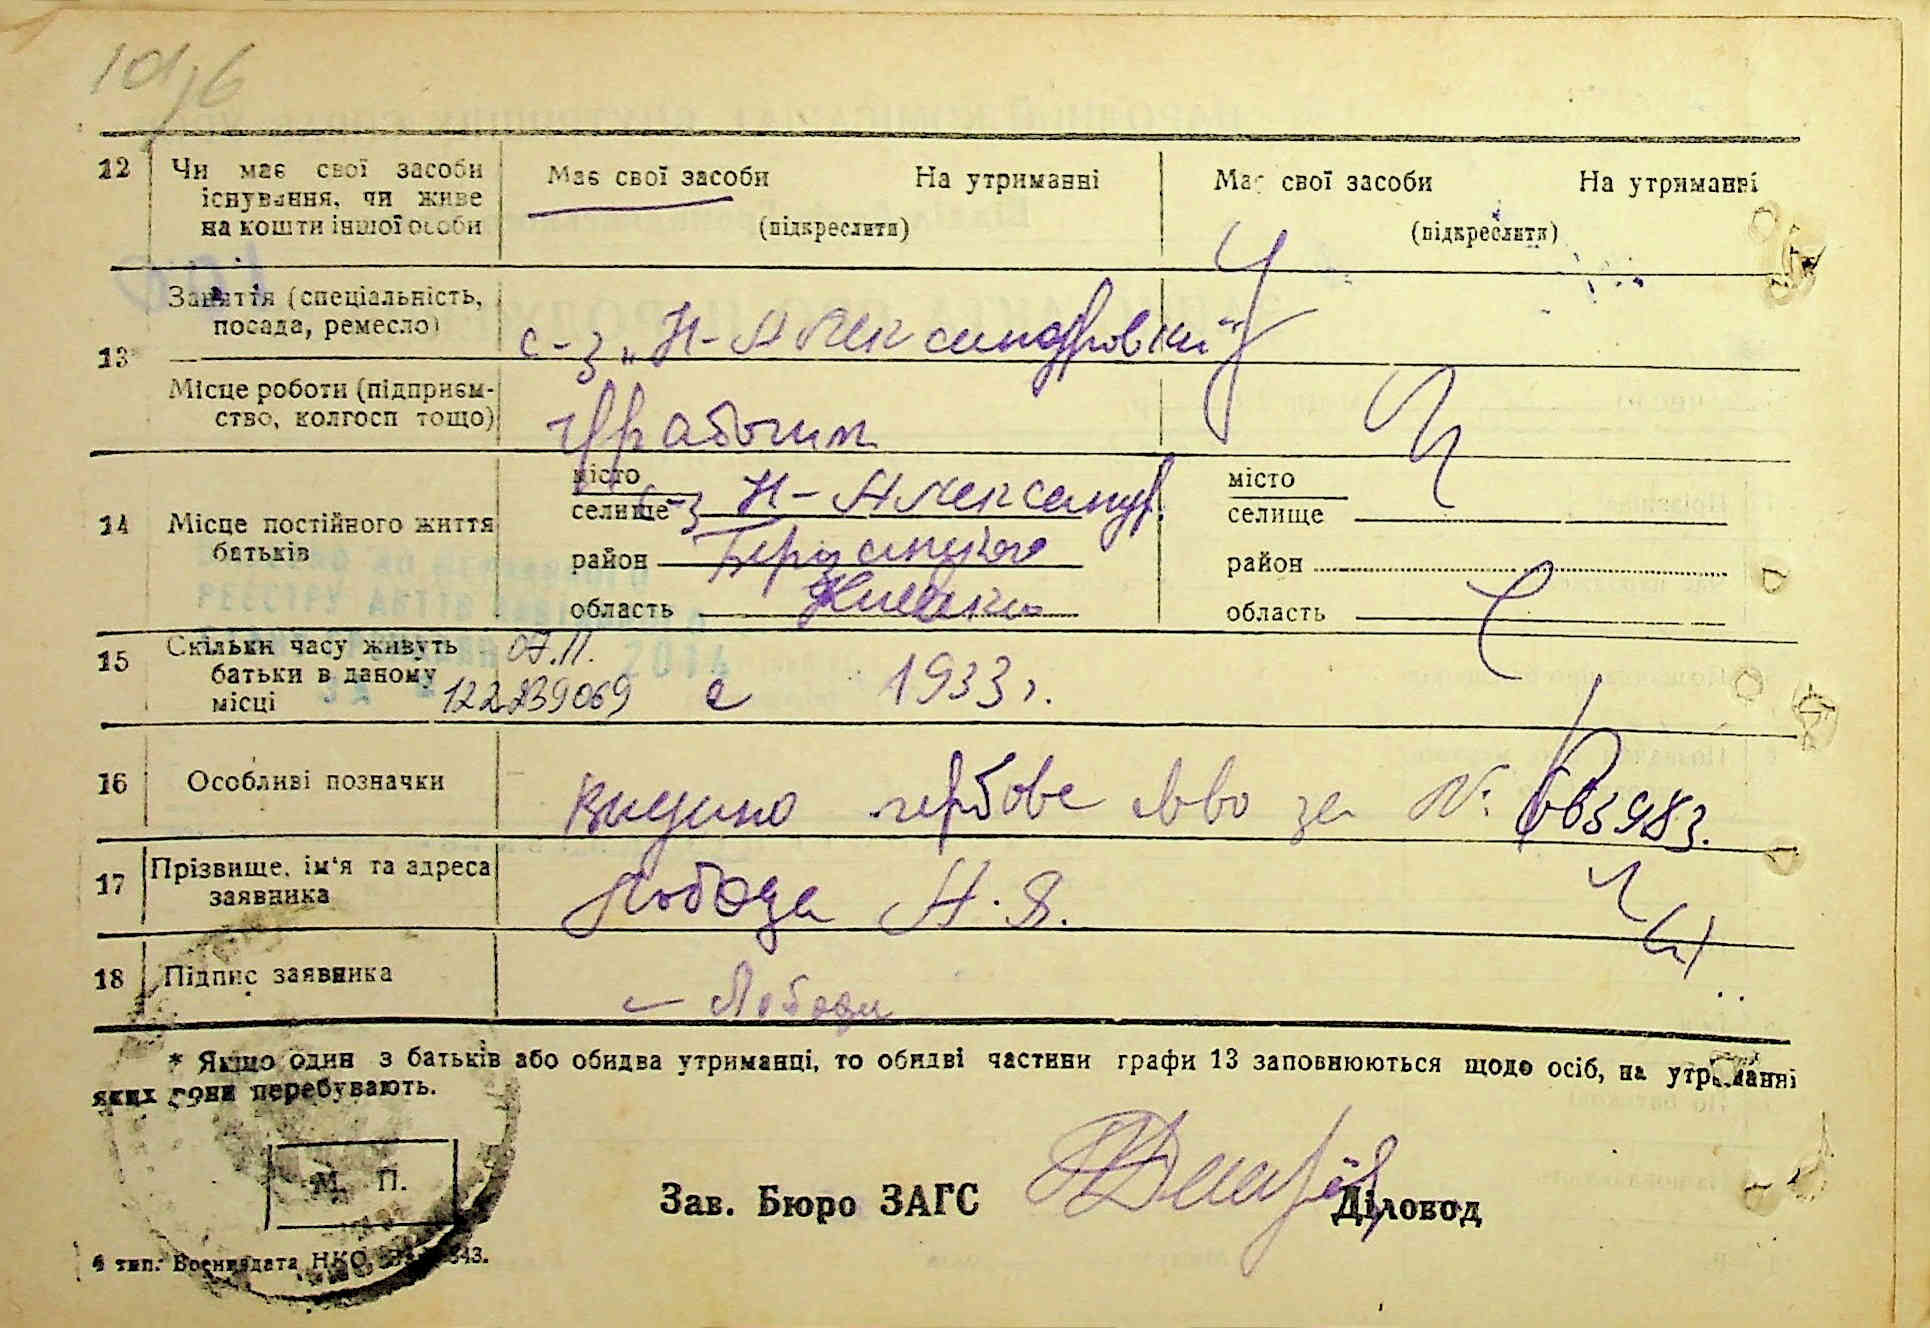 12 Чи має свої засоби існування, чи живе на кошти іншої особи
Має свої засоби На утриманні
(підкреслити)
Має свої засоби На утриманні
(підкреслити)
13 Заняття (спеціальність, посада, ремесло)
с-з „Н-Александровкий"
Місце роботи (підприєм-
ство, колгосп тощо)
рабочим
14 Місце постійного життя батьків
місто
селище с-з Н-Александр.
район
область
місто
селище
район
область
15 Скільки часу живуть батьки в даному місці
07.11.
122239069 с 1933 г.
2014
16 Особливі позначки
видано гербове св-во за №
17 Прізвище, ім'я та адреса заявника
Лобода Н. Я.
18 Підпис заявника
Лобода
* Якщо один з батьків або обидва утриманці, то обидві частини графи 13 заповнюються щодо осіб, на утриманні
яких вони перебувають.
М. П.
Зав. Бюро ЗАГС
Діловод
6 тип. Воениздата НКО